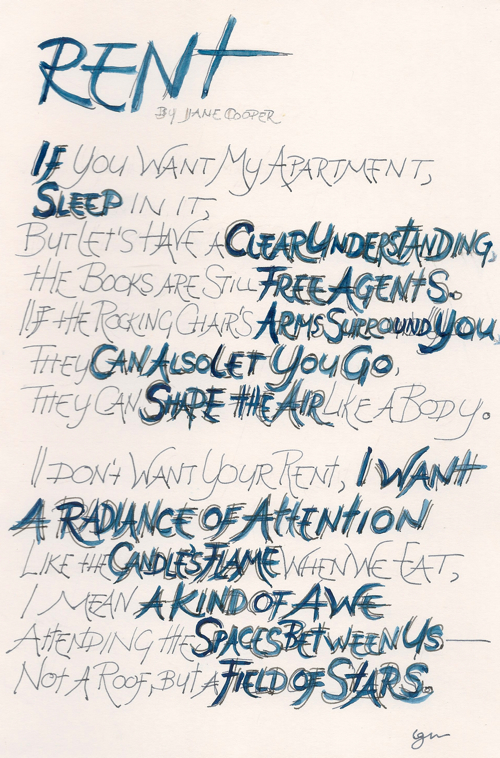 RENT
BY JANE COOPER
IF YOU WANT MY APARTMENT,
SLEEP IN IT,
BUT LET'S HAVE A CLEAR UNDERSTANDING,
THE BOOKS ARE STILL FREE AGENTS.
IF THE ROCKING CHAIR'S ARMS SURROUND YOU
THEY CAN ALSO LET YOU GO,
THEY CAN SHAPE THE AIR LIKE A BODY.
I DON'T WANT YOUR RENT, I WANT
A RADIANCE OF ATTENTION
LIKE THE CANDLE'S FLAME WHEN WE EAT,
I MEAN A KIND OF AWE
ATTENDING THE SPACES BETWEEN US—
NOT A ROOF, BUT A FIELD OF STARS.